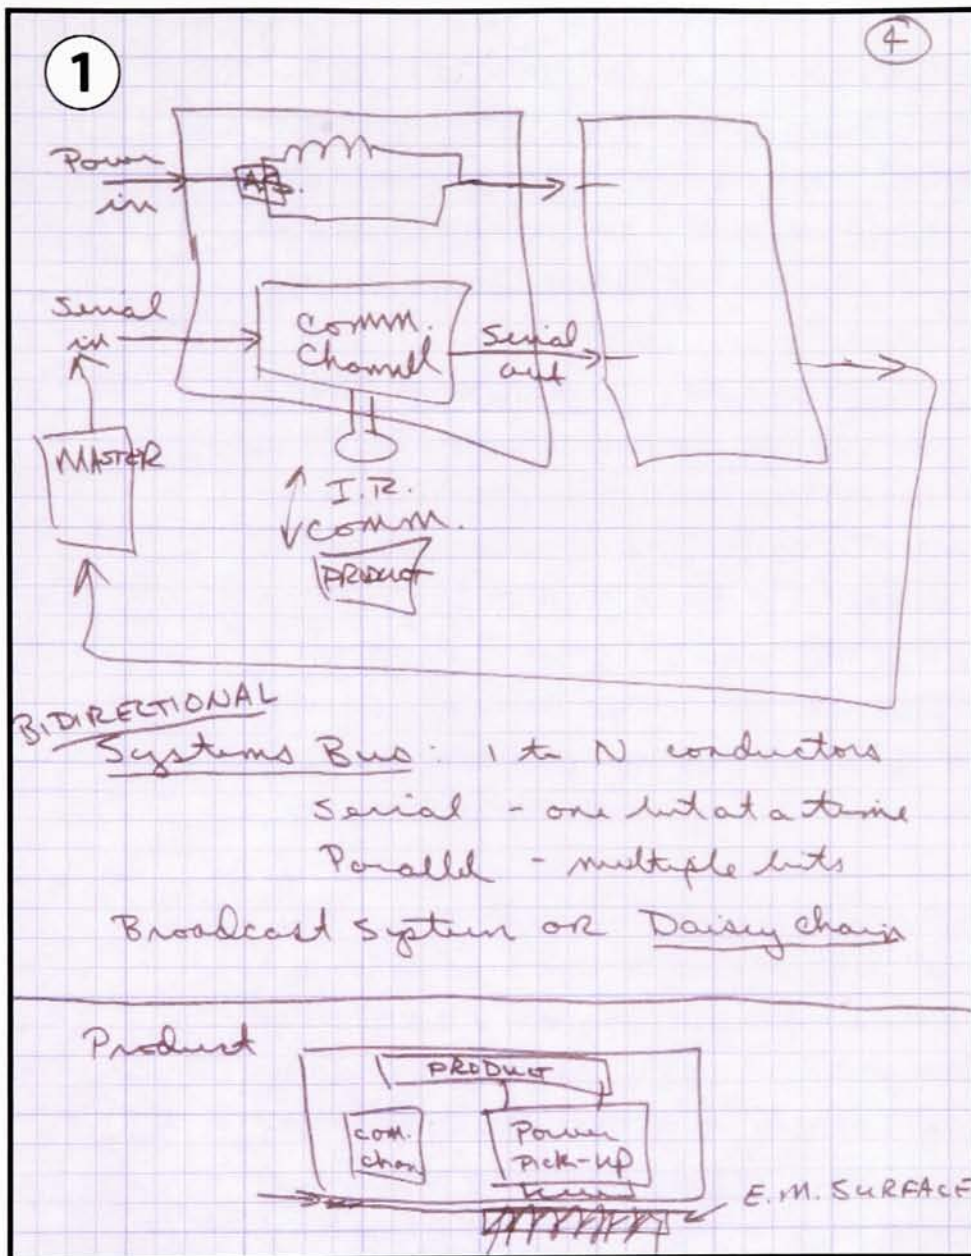 1
4
Power
in
Serial
in
Comm.
Channel
Serial
out
MASTER
I.R.
Comm.
PRODUCT
BIDIRECTIONAL
Systems Bus: 1 to N conductors
Serial - one bit at a time
Parallel - multiple bits
Broadcast System or Daisy chain
Product
PRODUCT
com.
chan
Power
Pick-up
E.M. SURFACE